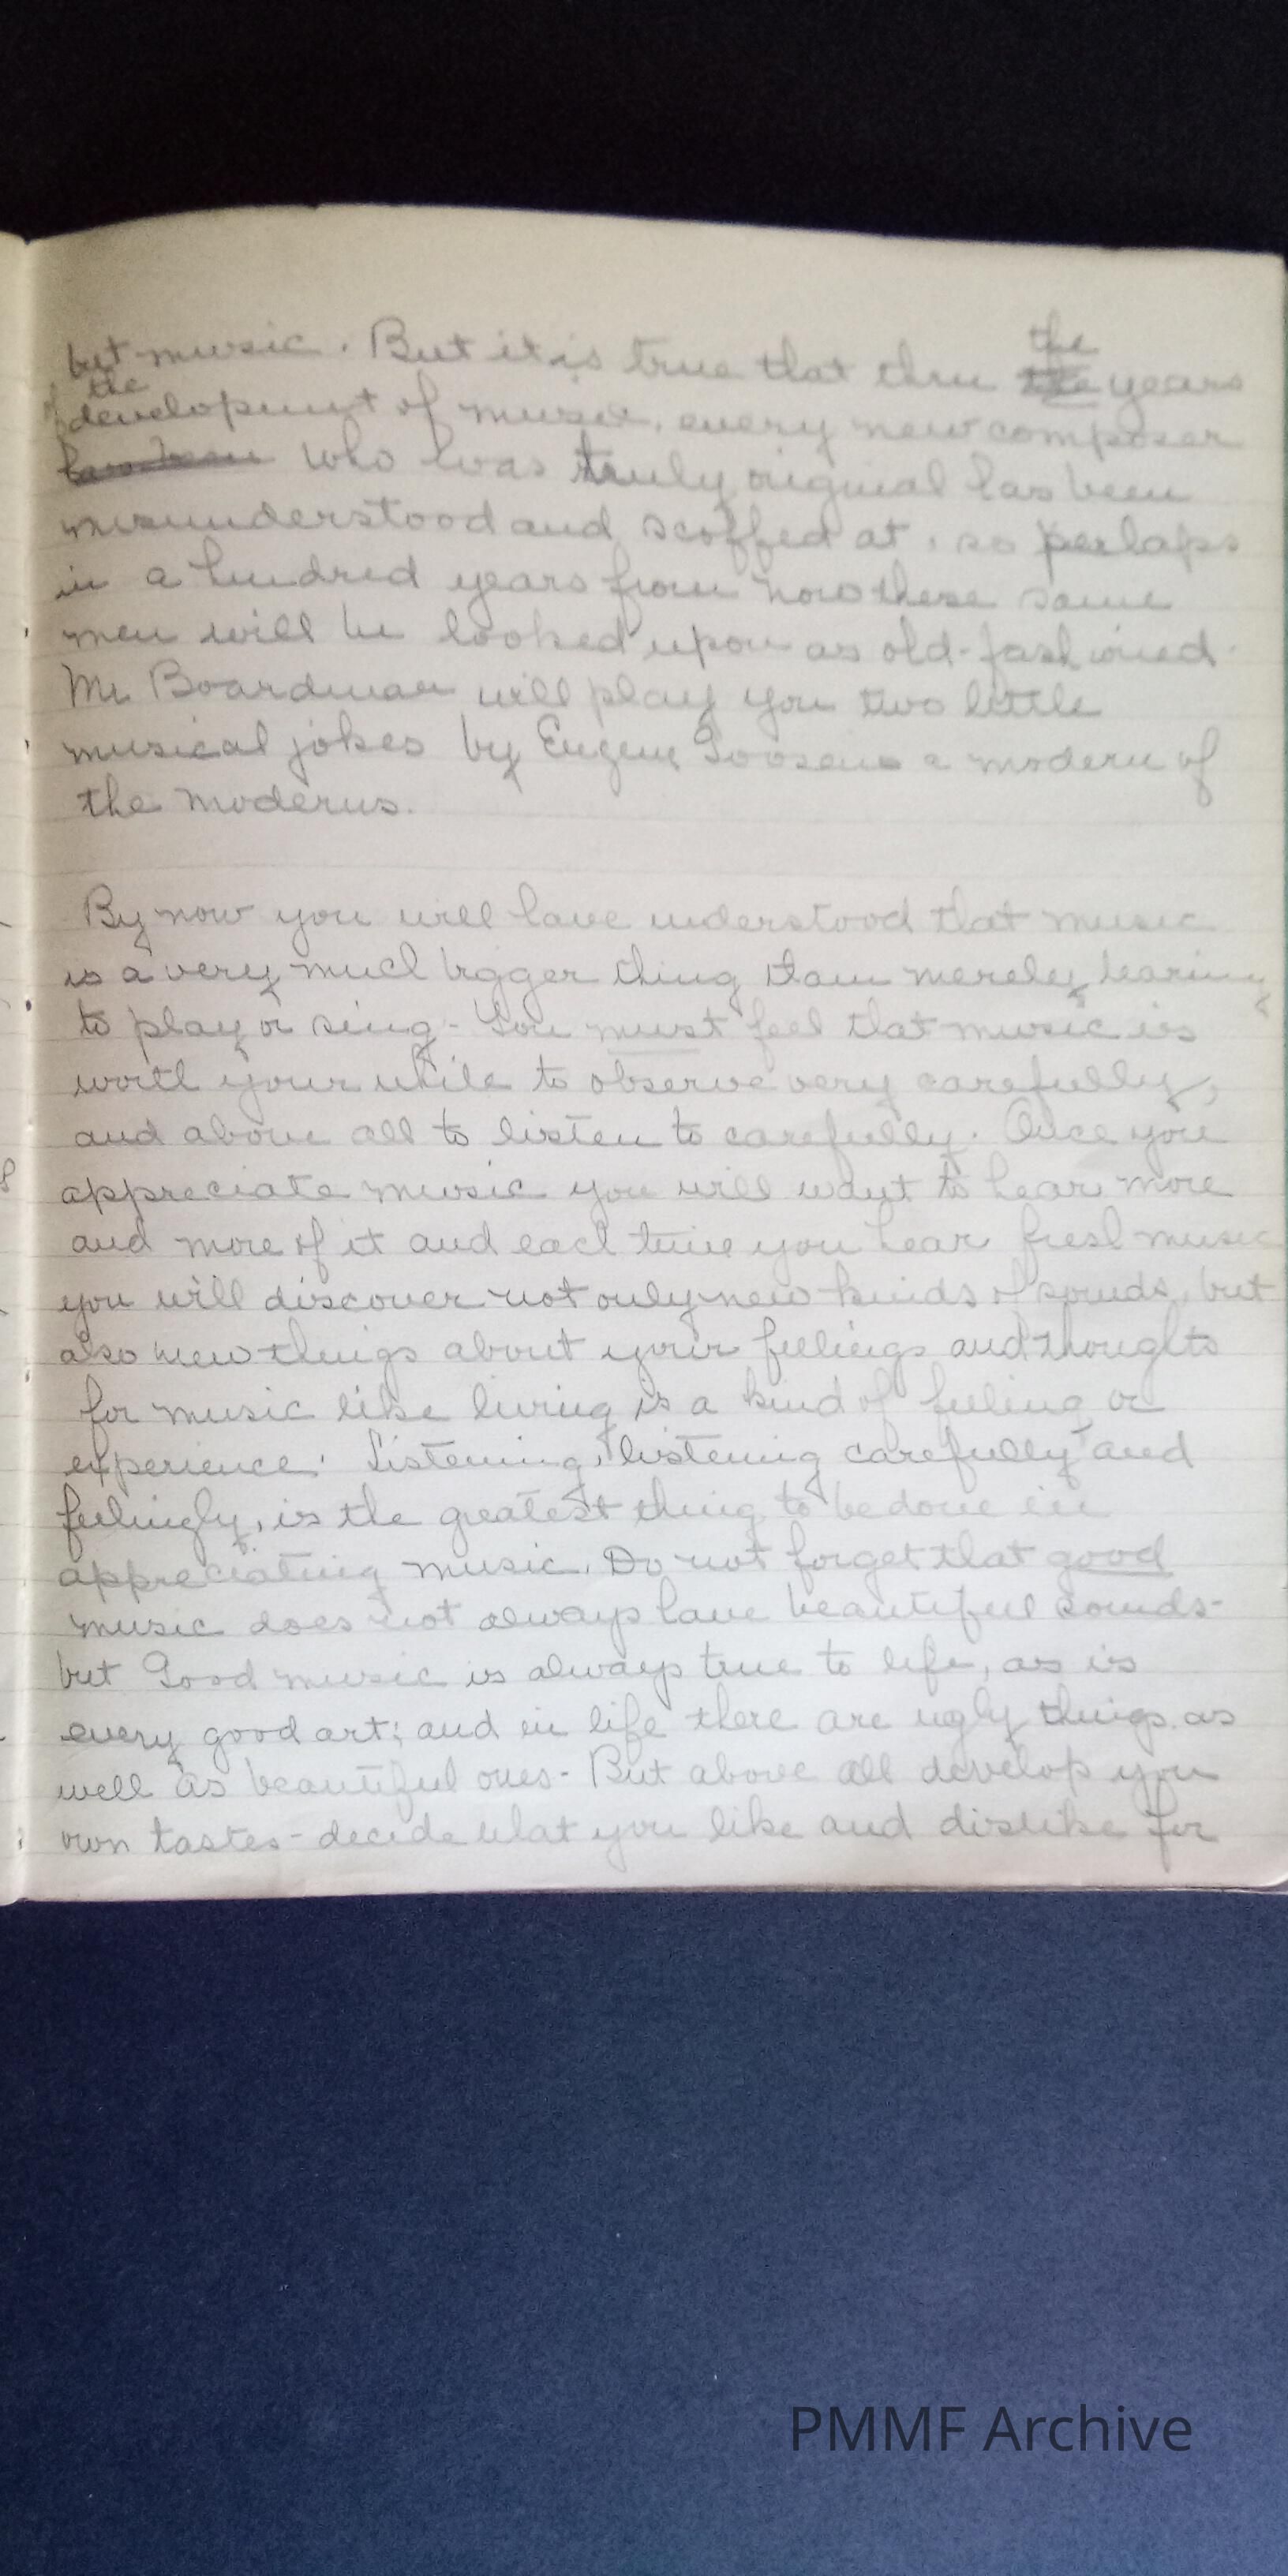 the
but music. But it is true that thru the years
of the
development of music, every new composer
has been who was truly original has been
misunderstood and scoffed at, so perhaps
in a hundred years from now these same
men will be looked upon as old-fashioned.
Mr Boardman will play you two little
musical jokes by Eugene Goosens a modern of
the moderns.
By now you will have understood that music
is a very much bigger thing than merely learning
to play or sing - You must feel that music is
worth your while to observe very carefully,
and above all to listen to carefully. Once you
appreciate music you will want to hear more
and more of it and each time you hear fresh music
you will discover not only new kinds of sounds, but
also new things about your feelings and thoughts
for music like living is a kind of feeling or
experience. Listening, listening carefully and
feelingly, is the greatest thing to be done in
appreciating music. Do not forget that good
music does not always have beautiful sounds -
but Good music is always true to life, as is
every good art; and in life there are ugly things as
well as beautiful ones - But above all develop you
own tastes - decide what you like and dislike for
PMMF Archive